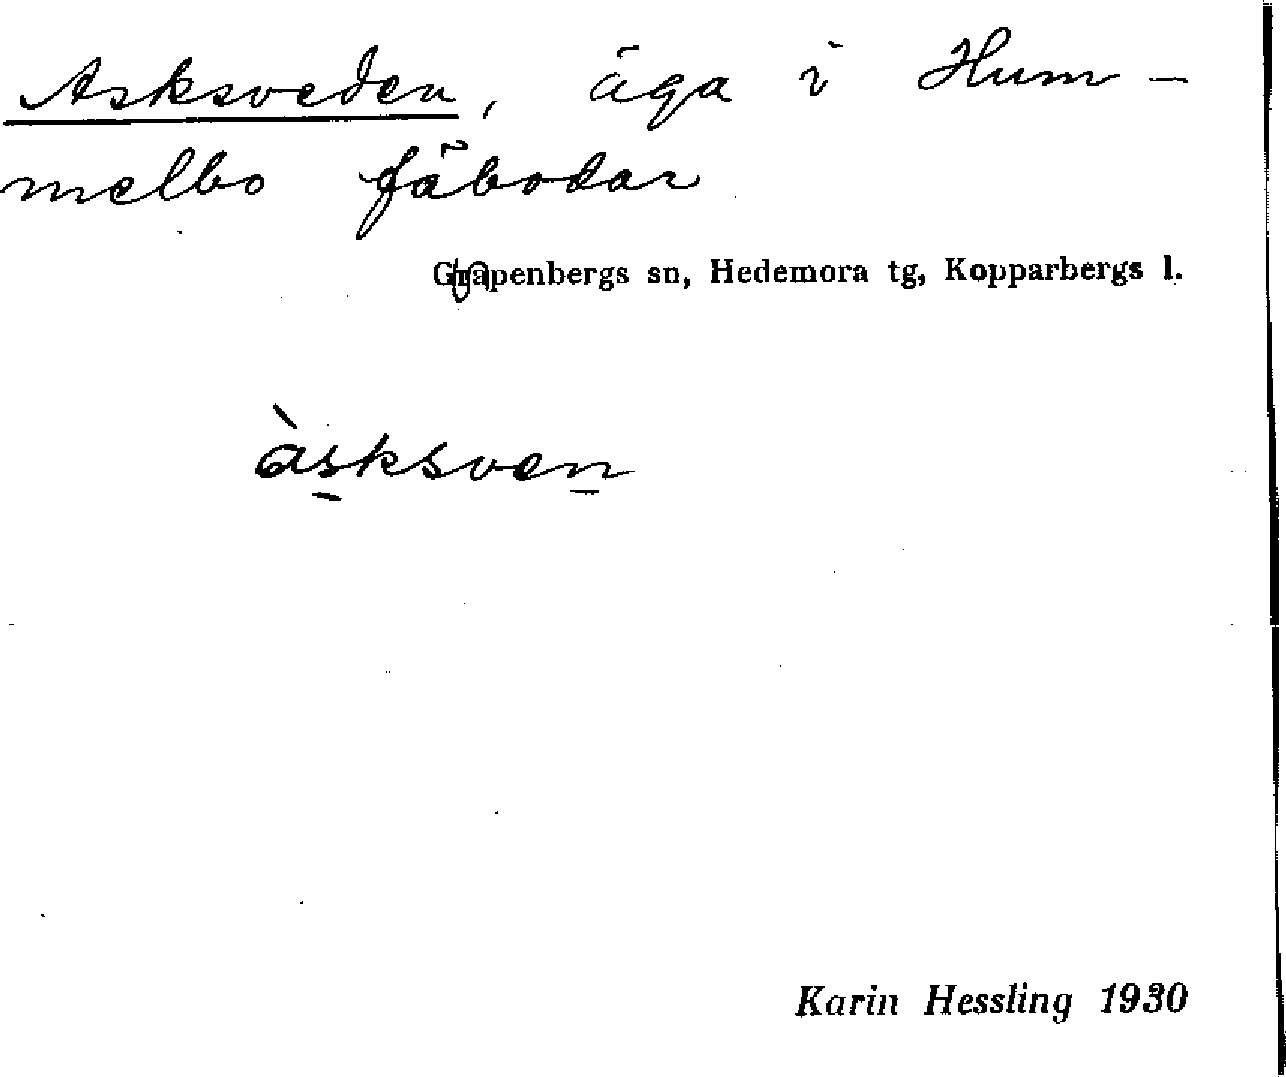 Asksveden, äga i Hum-
melbo fäbodar
Garpenbergs sn, Hedemora tg, Kopparbergs l.
àsksven
Karin Hessling 1930